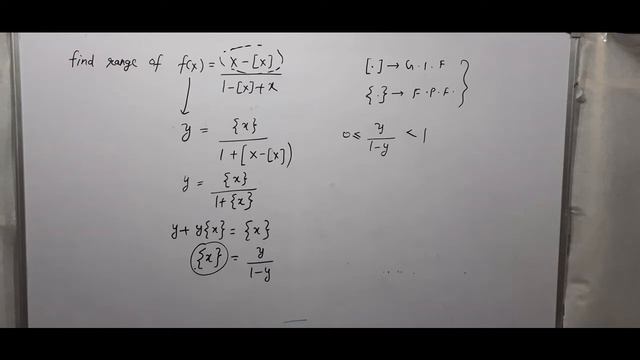 find range of f(x) = x-[x] / 1-[x]+x
[.] → G.I.F
{.} → F.P.F.
y = {x} / 1+[x-[x])
0 ≤ y / 1-y < 1
y = {x} / 1+{x}
y + y{x} = {x}
{x} = y / 1-y